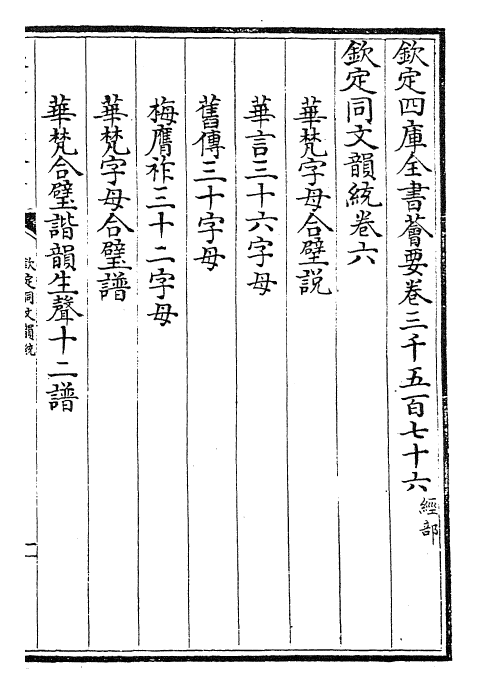 欽定四庫全書薈要卷三千五百七十六經部
欽定同文韻統卷六
華梵字母合璧説
華言三十六字母
舊傳三十字母
梅膺祚三十二字母
華梵字母合璧譜
華梵合璧諧韻生聲十二譜
欽定同文韻統